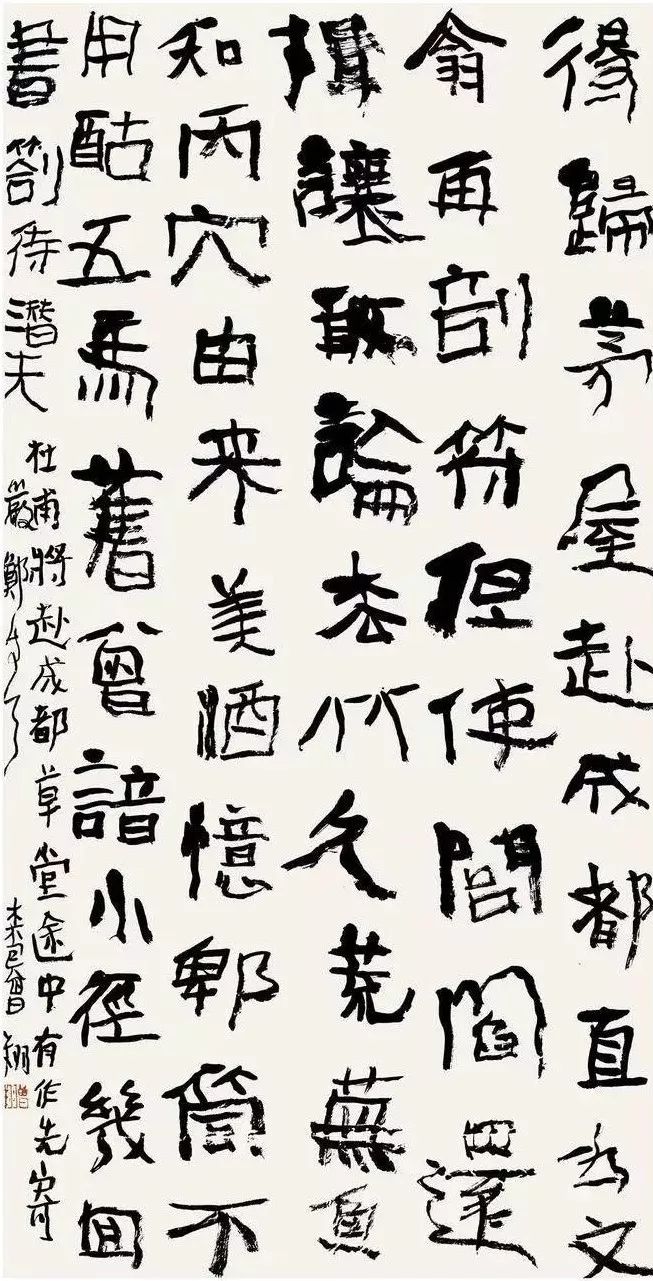 得歸茅屋赴成都直為文
翁再剖符但使閭閻還
揖讓敢論松竹久荒蕪魚
知丙穴由来美酒憶郫筒不
用酤五馬舊曾諳小徑幾囬
書劄待潛夫
杜甫將赴成都草堂途中有作先寄
嚴鄭公
巳曾翔